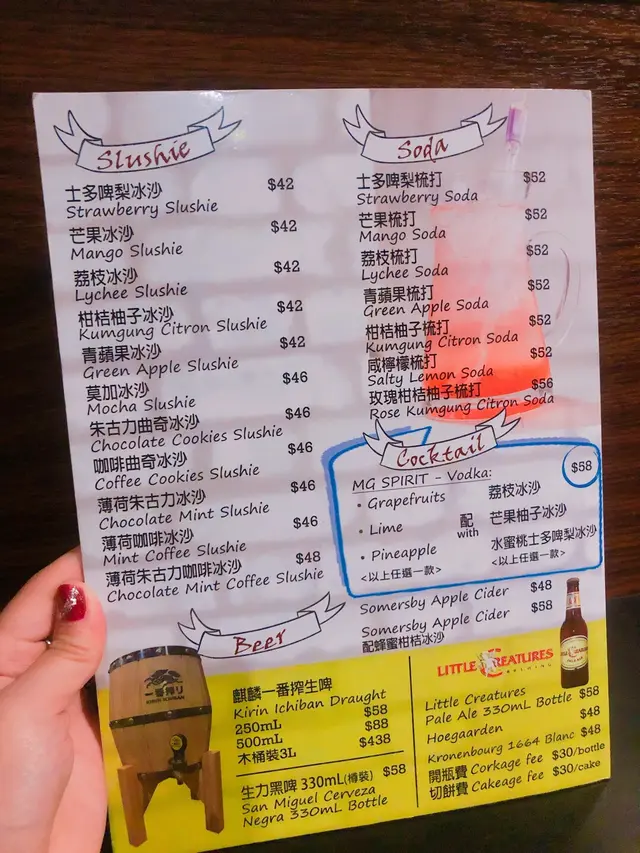 Slushie
士多啤梨冰沙 $42
Strawberry Slushie
芒果冰沙 $42
Mango Slushie
荔枝冰沙 $42
Lychee Slushie
柑桔柚子冰沙 $42
Kumgung Citron Slushie
青蘋果冰沙 $42
Green Apple Slushie
莫加冰沙 $46
Mocha Slushie
朱古力曲奇冰沙 $46
Chocolate Cookies Slushie
咖啡曲奇冰沙 $46
Coffee Cookies Slushie
薄荷朱古力冰沙 $46
Chocolate Mint Slushie
薄荷咖啡冰沙 $46
Mint Coffee Slushie
薄荷朱古力咖啡冰沙 $48
Chocolate Mint Coffee Slushie
Soda
士多啤梨梳打 $52
Strawberry Soda
芒果梳打 $52
Mango Soda
荔枝梳打 $52
Lychee Soda
青蘋果梳打 $52
Green Apple Soda
柑桔柚子梳打 $52
Kumgung Citron Soda
咸檸檬梳打 $52
Salty Lemon Soda
玫瑰柑桔柚子梳打 $56
Rose Kumgung Citron Soda
Cocktail
$58
MG SPIRIT - Vodka:
• Grapefruits
• Lime
• Pineapple
<以上任選一款>
配
with
荔枝冰沙
芒果柚子冰沙
水蜜桃士多啤梨冰沙
<以上任選一款>
Somersby Apple Cider $48
Somersby Apple Cider $58
配蜂蜜柑桔冰沙
Beer
一番搾り
KIRIN ICHIBAN
麒麟一番搾生啤
Kirin Ichiban Draught
250mL $58
500mL $88
木桶裝3L $438
生力黑啤 330mL(樽裝) $58
San Miguel Cerveza
Negra 330mL Bottle
LITTLE CREATURES
BREWING
Little Creatures
Pale Ale 330mL Bottle $58
Hoegaarden $48
Kronenbourg 1664 Blanc $48
開瓶費 Corkage fee $30/bottle
切餅費 Cakeage fee $30/cake